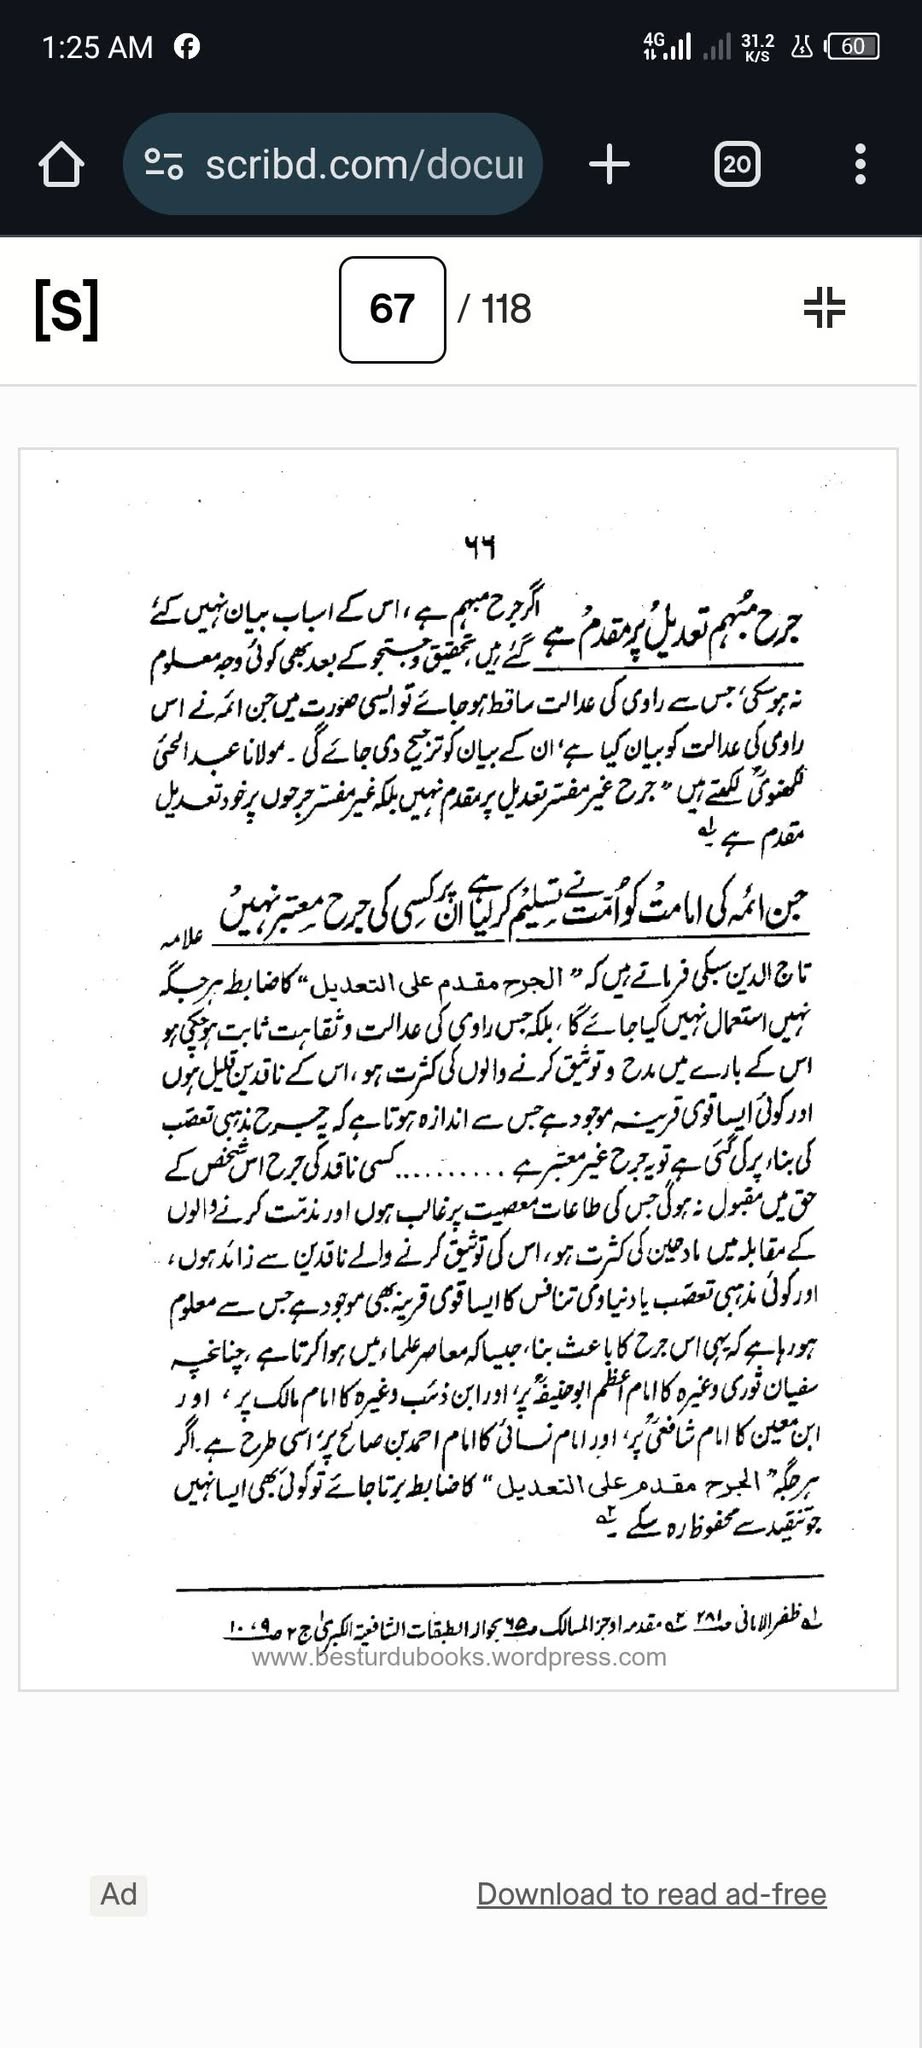 1:25 AM
4G
31.2 K/S
60
scribd.com/docu
20
[S]
67 / 118
۶۶
جرح مبہم تعدیل پر مقدم ہے اگر جرح مبہم ہے، اس کے اسباب بیان نہیں کئے
گئے ہیں، تحقیق و جستجو کے بعد بھی کوئی وجہ معلوم
نہ ہوسکی، جس سے راوی کی عدالت ساقط ہوجائے تو ایسی صورت میں جن ائمہ نے اس
راوی کی عدالت کو بیان کیا ہے، ان کے بیان کو ترجیح دی جائے گی ۔ مولانا عبدالحئ
لکھنویؒ لکھتے ہیں " جرح غیر مفسر تعدیل پر مقدم نہیں بلکہ غیر مفسر جرحوں پر خود تعدیل
مقدم ہے لہ
جن ائمہ کی امامت کو اُمّت نے تسلیم کرلیا ہے اُن پر کسی کی جرح معتبر نہیں علامہ
تاج الدین سبکی فرماتے ہیں کہ " الجرح مقدم علی التعدیل " کا ضابطہ ہر جگہ
نہیں استعمال نہیں کیا جائے گا، بلکہ جس راوی کی عدالت و ثقاہت ثابت ہوچکی ہو
اس کے بارے میں مدح و توثیق کرنے والوں کی کثرت ہو، اس کے ناقدین قلیل ہوں
اور کوئی ایسا قوی قرینہ موجود ہے جس سے اندازہ ہوتا ہے کہ یہ جرح مذہبی تعصب
کی بناء پر کی گئی ہے تو یہ جرح غیر معتبر ہے .......... کسی ناقد کی جرح اس شخص کے
حق میں مقبول نہ ہوگی جس کی طاعات معصیت پر غالب ہوں اور مذمت کرنے والوں
کے مقابلہ میں مادحین کی کثرت ہو، اس کی توثیق کرنے والے ناقدین سے زائد ہوں،
اور کوئی مذہبی تعصب یا دنیاوی تنافس کا ایسا قوی قرینہ بھی موجود ہے جس سے معلوم
ہو رہا ہے کہ یہی اس جرح کا باعث بنا، جیسا کہ معاصر علماء میں ہوا کرتا ہے، چنانچہ
سفیان ثوری وغیرہ کا امام اعظم ابوحنیفہؒ پر، اور ابن ذئب وغیرہ کا امام مالک پر، اور
ابن معین کا امام شافعیؒ پر، اور امام نسائی کا امام احمد بن صالح پر، اسی طرح ہے ۔ اگر
ہر جگہ " الجرح مقدم علی التعدیل " کا ضابطہ برتا جائے تو کوئی بھی ایسا نہیں
جو تنقید سے محفوظ رہ سکے ۲ہ
لہ ظفر الامانی ص۲۸۱ ۲ہ مقدمہ اوجز المسالک ص۶۵ بحوالہ الطبقات الشافعیۃ الکبریٰ ج ۲ ص ۹، ۱۰
www.besturdubooks.wordpress.com
Ad
Download to read ad-free